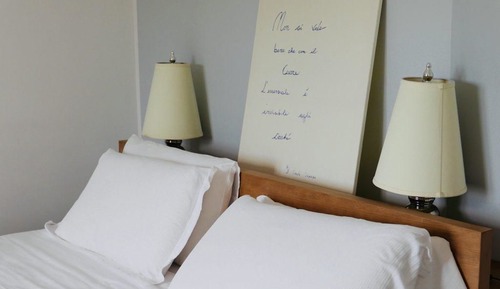 Non si vede
bene che con il
Cuore
L'essenziale è
invisibile agli
occhi